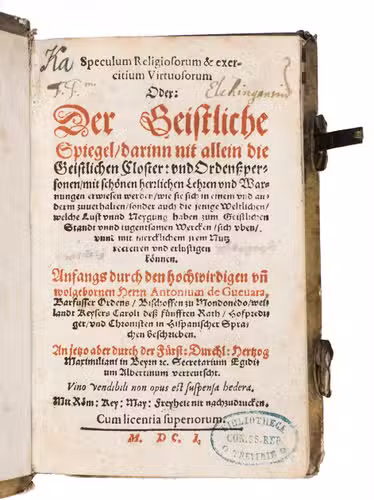 Ka
Speculum Religiosorum & exer-
citium Virtuosorum
Oder:
Elchingensis
Der Geistliche
Spiegel/darinn nit allein die
Geistlichen Closter: vnd Ordenßper-
sonen/mit schönen herrlichen Lehren vnd War-
nungen erwisen werden/wie sie sich in einem vnd an-
derm zuuerhalten/sonder auch die jenge Weltlichen/
welche Lust vnnd Neygung haben zum Geistlichen
Standt vnnd tugentsamen Wercken/sich vben/
vnnd mit mercklichem jrem Nutz
vnd erlustigen
können.
Anfangs durch den hochwirdigen vñ
wolgebornen Herrn Antonium de Gueuara,
Barfusser Ordens/Bischoffen zu Mondonedo/weil-
landt Keysers Caroli deß fünfften Rath/Hofpredi-
ger/vnd Chronisten in Hispanischer Spra-
chen beschrieben.
An jetzo aber durch der Fürst: Durchl: Hertzog
Maximiliani in Beyrn ꝛc. Secretarium Egidi-
um Albertinum verteutscht.
Vino vendibili non opus est suspensa hedera.
Mit Röm: Key: May: Freyheit nit nachzudrucken.
Cum licentia superiorum.
M. DC. I.
BIBLIOTHECA